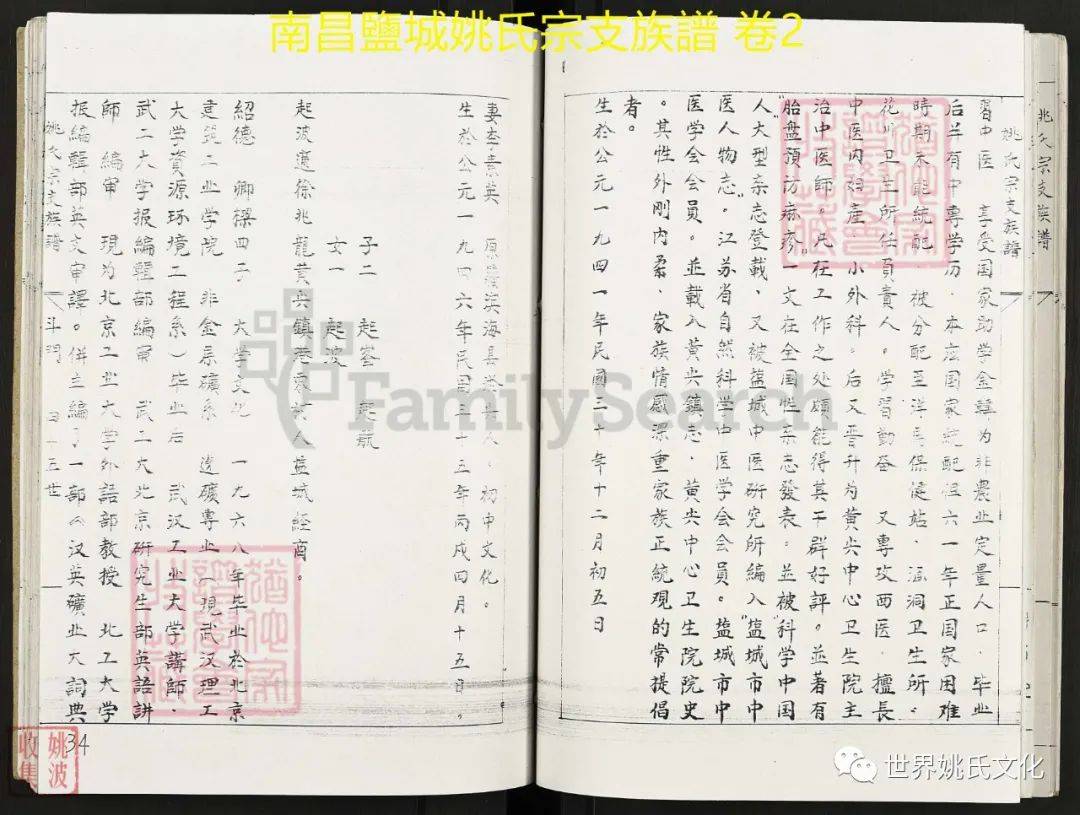 南昌鹽城姚氏宗支族譜 卷2
姚氏宗支族譜
姚氏宗支族譜
習中医 享受国家助学金轉为非農业定量人口．毕业
后羊有中專学历．本应国家統配但六一年正国家困难
時期未能統配．被分配至洋馬保健站．洞卫生所．
花川卫生所任負責人．学習勤奋 又專攻西医．擅長
中医内妇產．小外科．后又晋升为黄尖中心卫生院主
治中医師。凡在工作之处頗能得其干群好評。並著有
"胎盘預防麻疹"一文在全国性杂志發表．並被"科学中国
人"大型杂志登載．又被盐城中医研究所編入"盐城市中
医人物志"。江苏省自然科学中医学会会員。盐城市中
医学会会員。並載入黄尖鎮志．黄尖中心卫生院院史
。其性外刚内柔．家族情感深重家族正統观的常提倡
者。
生於公元一九四一年民國三十年十二月初五日
妻李素英 原 滨海县 人．初中文化。
生於公元一九四六年民国三十五年丙戌四月十五日。
子二 起峯 起航
女一 起波
起波適徐兆龍黄尖鎮 東村人 盐城經商。
紹德 卿樑四子 大学文化 一九六八年毕业於北京
建筑工业学院 非金属礦系 选礦專业（現武汉理工
大学資源环境工程系）毕业后 武汉工业大学講師．
武工大学报編輯部編審 武工大北京研究生部英語講
師 編审 現为北京工业大学外語部教授 北工大学
报編輯部英文审譯。併主編了一部《汉英礦业大詞典
姚氏宗支族譜 斗門 五世
34
FamilySearch
姚波
收集
世界姚氏文化